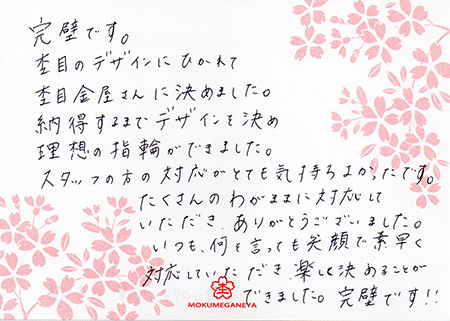 完壁です。
杢目のデザインにひかれて
杢目金屋さんに決めました。
納得するまでデザインを決め
理想の指輪ができました。
スタッフの方の対応がとても気持ちよかったです。
たくさんのわがままに対応して
いただき、ありがとうございました。
いつも、何を言っても笑顔で素早く
対応していただき、楽しく決めることが
できました。完壁です!!
MOKUMEGANEYA